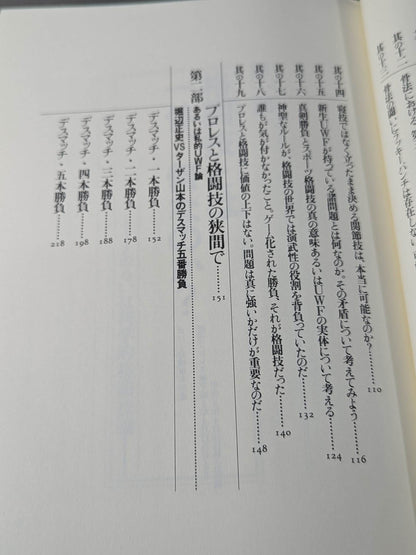 其の十二 骨法における
其の十三 骨法の闘いにアッパーパンチは存在しない
其の十四 寝技ではなく立ったまま決める関節技は、本当に可能なのか?………110
其の十五 新生UWFが持っている諸問題とは何なのか。その矛盾について考えてみよう………116
其の十六 真剣勝負とスポーツ格闘技の真の意味あるいはUWFの実体について考える………124
其の十七 神聖なルールが、格闘技の世界では演武性の役割を背負っていたのだ………132
其の十八 誰もが気が付かなかったこと。ゲーム化された勝負、それが格闘技だった………140
其の十九 プロレスと格闘技に価値の上下はない。問題は真に強いかだけが重要なのだ………148
第二部 プロレスと格闘技の狭間で………151
あるいは私的UWF論
堀辺正史VSターザン山本のデスマッチ五番勝負
デスマッチ・一本勝負………152
デスマッチ・二本勝負………178
デスマッチ・三本勝負………188
デスマッチ・四本勝負………198
デスマッチ・五本勝負………218